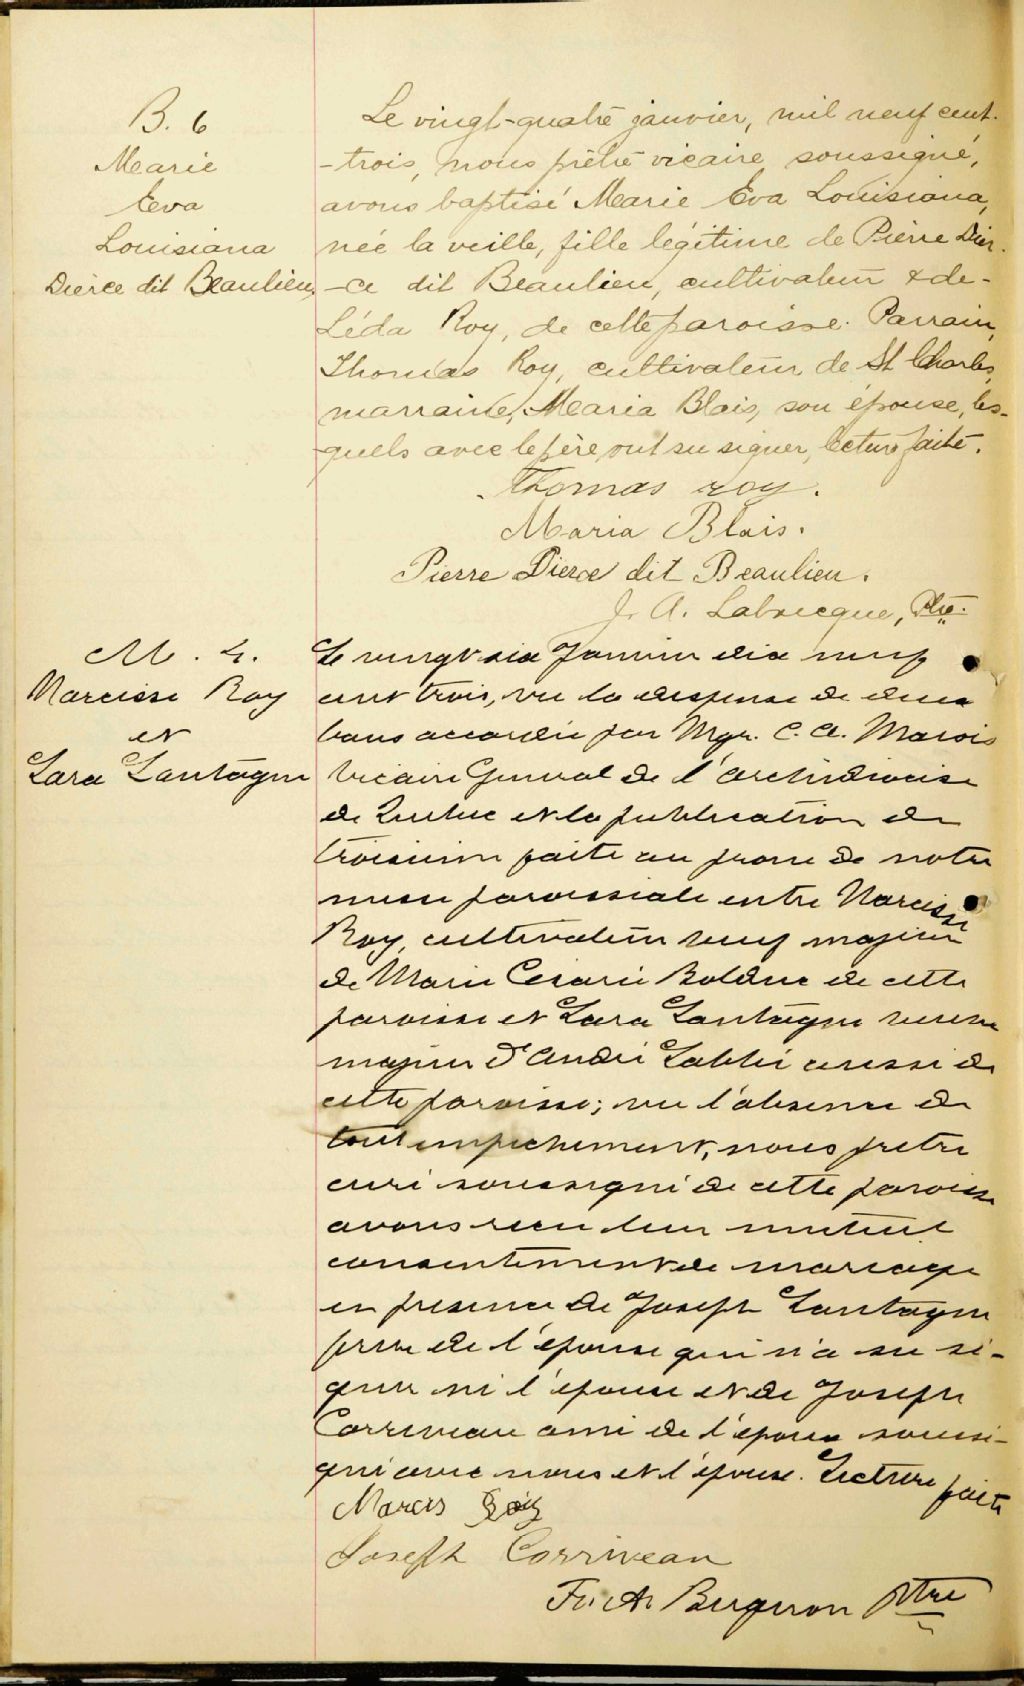 B. 6
Marie
Eva
Louisiana
Dierce dit Beaulieu
Le vingt-quatre janvier, mil neuf cent-
-trois, nous prêtre vicaire soussigné,
avons baptisé Marie Eva Louisiana,
née la veille, fille légitime de Pierre Dier-
-ce dit Beaulieu, cultivateur & de
Léda Roy, de cette paroisse. Parrain,
Thomas Roy, cultivateur de St Charles,
marraine, Maria Blais, son épouse, les-
quels avec le père ont su signer, lecture faite.
Thomas roy.
Maria Blais.
Pierre Dierce dit Beaulieu.
J. A. Labrecque, Ptre.
M. 4.
Narcisse Roy
et
Lara Lantagne
Le vingt six Janvier dix neuf
cent trois, vu la dispense de deux
bans accordée par Mgr. C. A. Marois
Vicaire General de l'archidiocèse
de Quebec et la publication du
troisieme faite au prone de notre
messe paroissiale entre Narcisse
Roy, cultivateur veuf majeur
de Marie Cesarie Bolduc de cette
paroisse et Lara Lantagne veuve
majeur d'André Labbé aussi de
cette paroisse; vu l'absence de
tout empechement, nous pretre
curé soussigné de cette paroisse
avons recu leur mutuel
consentement de mariage
en presence de Joseph Lantagne
frere de l'épouse qui n'a su si-
gner ni l'épouse et de Joseph
Corriveau ami de l'époux soussi-
gné avec nous et l'époux. Lecture faite
Narcis Roy
Joseph Corriveau
Bergeron ptre